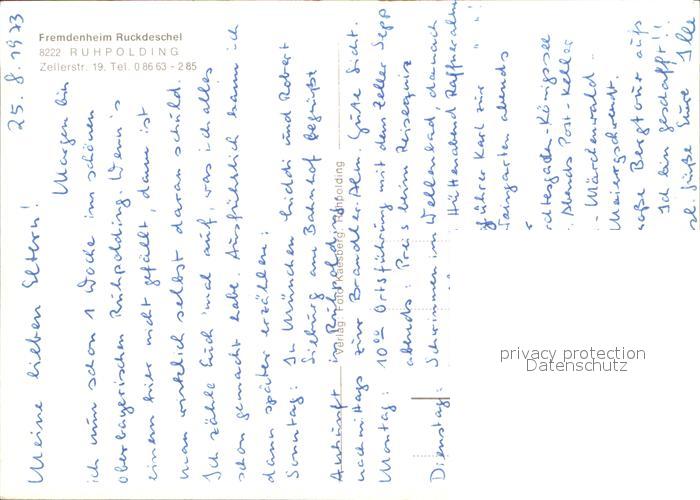 Fremdenheim Ruckdeschel
8222 RUHPOLDING
Zellerstr. 19, Tel. 0 86 63 - 2 85
25.8.1973
Meine lieben Eltern!
Morgen bin
ich nun schon 1 Woche im schönen
oberbayerischen Ruhpolding. Wenn's
einem hier nicht gefällt, dann ist
man wirklich selbst daran schuld.
Ich zähle Euch 'mal auf, was ich alles
schon gemacht habe. Ausführlich kann ich
dann später erzählen:
Sonntag: In München Giddi und Robert
Sieburg am Bahnhof begrüßt
Ankunft in Ruhpolding
nachmittags zur Brandler Alm. Gute Sicht.
Montag: 10 00 Ortsführung mit dem Zeller Sepp
abends: Preis beim Reisequiz
Dienstag: Schwimmen im Wellenbad, danach
Hüttenabend Raffneralm
führer Karl zur " "!
abends
chtesgaden-Königssee
Abends Post-Keller
- Märchenwald -
Maiergschwendt.
oße Bergtour aufs
Ich bin geschafft!!
Grüße Eure
Verlag: Foto Kaesberg, Ruhpolding
privacy protection
Datenschutz